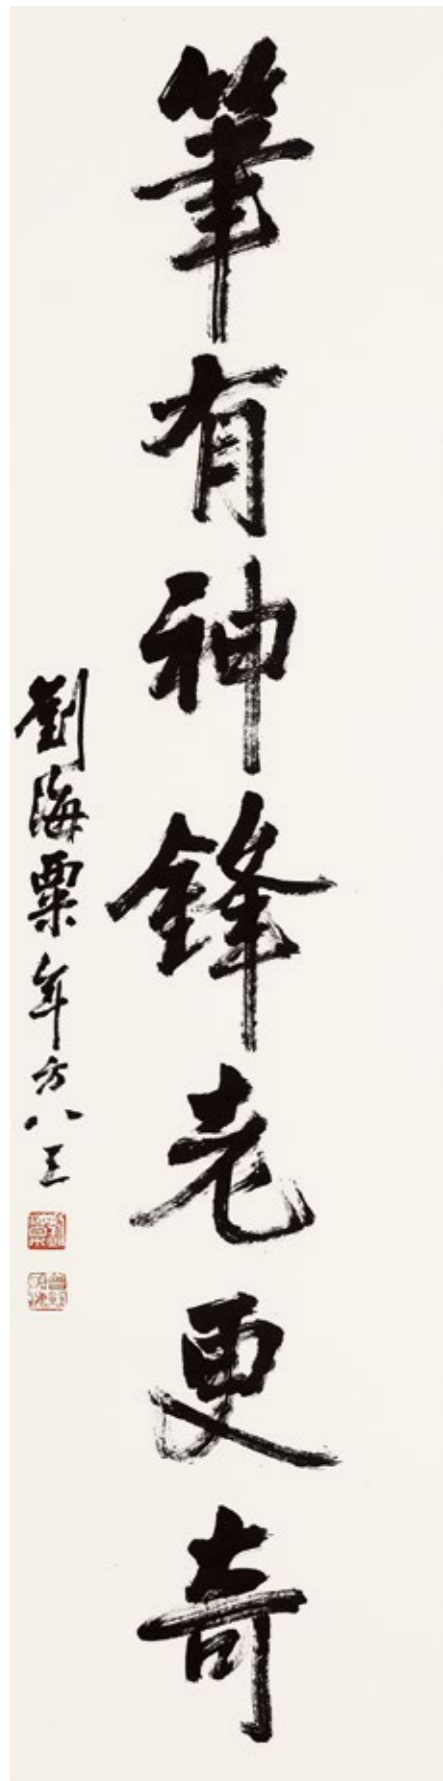 筆有神鋒老更奇
劉海粟年方八三